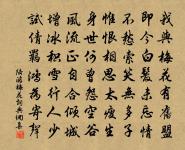 我與梅花有舊盟
即今白髮未忘情
不愁索笑無多子
惟恨相思太瘦生
身世何曾怨空谷
風流正自合傾城
增冰積雪行人少
試倩羈鴻為寄聲
陸游梅花詞典網